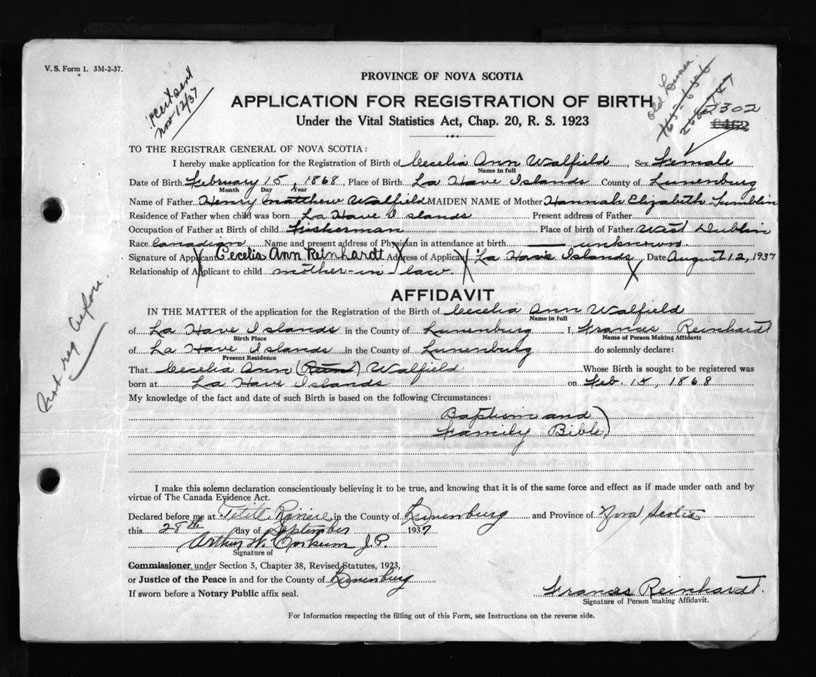 V. S. Form 1. 3M-2-37.
PROVINCE OF NOVA SCOTIA
Cert sent
Nov 12/37
APPLICATION FOR REGISTRATION OF BIRTH
Under the Vital Statistics Act, Chap. 20, R. S. 1923
302
TO THE REGISTRAR GENERAL OF NOVA SCOTIA:
I hereby make application for the Registration of Birth of Cecelia Ann Walfield Sex Female
Name in full
Date of Birth February 15, 1868, Place of Birth La Have Islands County of Lunenburg
Month Day Year
Name of Father Henry Matthew Walfield MAIDEN NAME of Mother Hannah Elizabeth
Residence of Father when child was born La Have Islands Present address of Father
Occupation of Father at Birth of child Fisherman Place of birth of Father West Dublin
Race Canadian Name and present address of Physician in attendance at birth — unknown.
Signature of Applicant Cecelia Ann Reinhardt Address of Applicant La Have Islands Date August 12, 1937
Relationship of Applicant to child mother-in law.
AFFIDAVIT
Not reg before.
IN THE MATTER of the application for the Registration of the Birth of Cecelia Ann Walfield
Name in full
of La Have Islands in the County of Lunenburg I, Frances Reinhardt
Birth Place Name of Person Making Affidavit
of La Have Islands in the County of Lunenburg do solemnly declare:
Present Residence
That Cecelia Ann Walfield Whose Birth is sought to be registered was
born at La Have Islands on Feb. 15, 1868
My knowledge of the fact and date of such Birth is based on the following Circumstances:
Baptism and
Family Bible
I make this solemn declaration conscientiously believing it to be true, and knowing that it is of the same force and effect as if made under oath and by
virtue of The Canada Evidence Act.
Declared before me at Petite Riviere in the County of Lunenburg and Province of Nova Scotia
this 28th day of September 1937
Arthur W. Corkum J.P.
Signature of
Commissioner, under Section 5, Chapter 38, Revised Statutes, 1923,
or Justice of the Peace in and for the County of Lunenburg
If sworn before a Notary Public affix seal.
Frances Reinhardt.
Signature of Person making Affidavit.
For Information respecting the filling out of this Form, see Instructions on the reverse side.